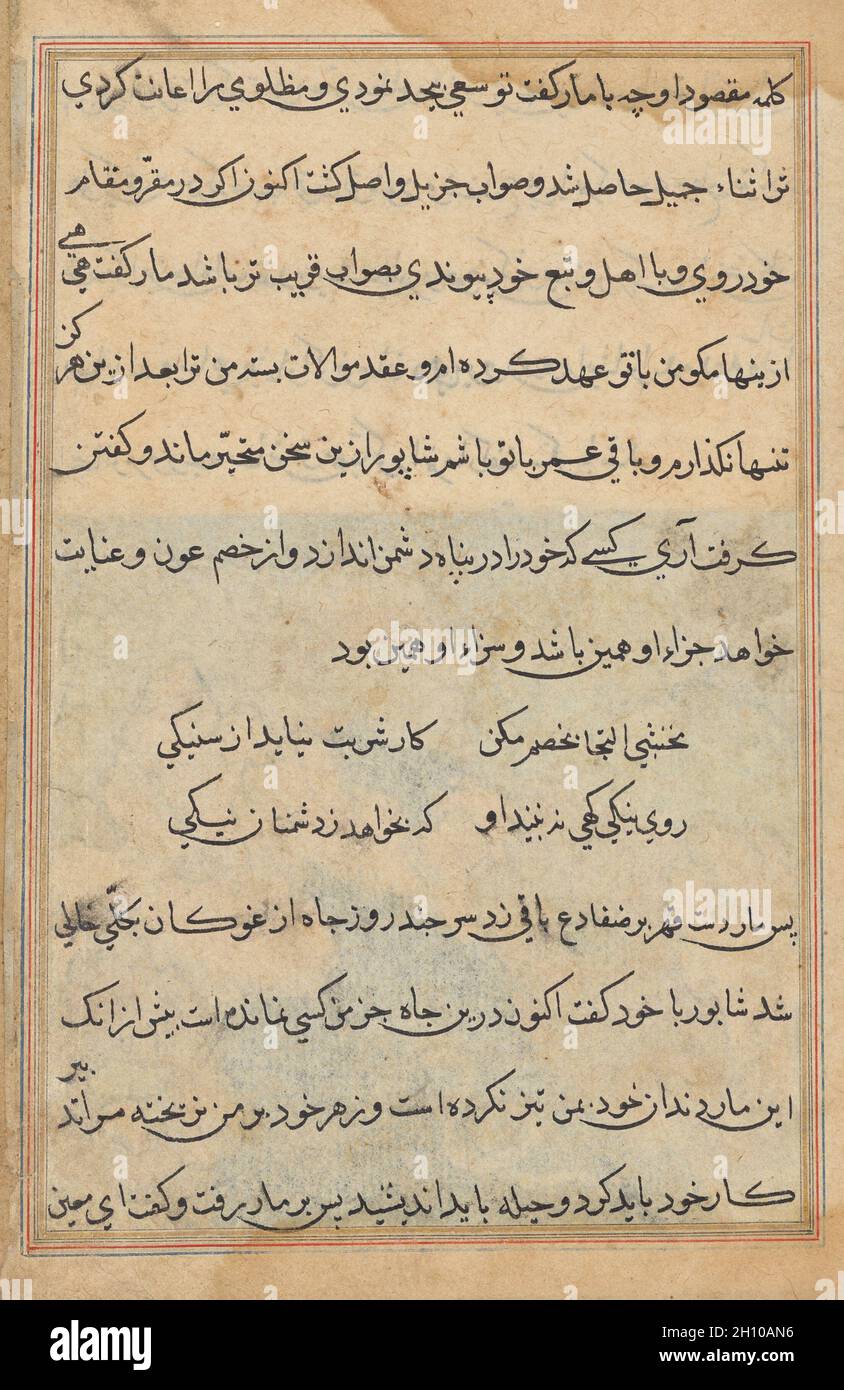 کلمه مقصود او چه با مار کفت تو سعی بجد نمودی و مظلومی را اعانت کردی
ترا ثناء جمیل حاصل شد و صواب جزیل واصل کشت اکنون اکر در مقرّ و مقام
خود روی و با اهل و تبع خود پیوندی بصواب قریب تر باشد مار کفت هی هی
ازینها مکو من با تو عهد کرده ام و عقد موالات بسته من ترا بعد ازین هرکز
تنها نکذارم و باقی عمر با تو باشم شاپور ازین سخن متحیّر ماند و کفتن
کرفت آری کسی که خود را در پناه دشمن اندازد و از خصم عون و عنایت
خواهد جزاء او همین باشد و سزاء او همین بود
نخشبی التجا بخصم مکن کار شربت نیاید از
روی نیکی کهی نه بیند او که بخواهد ز دشمنان نیکی
پس مار دست قهر بر ضفادع باقی زد سر چند روز جاه از غوکان بکلّی خالی
شد شابور با خود کفت اکنون درین جاه جز من کسی نمانده است بیش از انک
این مار دندان خود بمن تیز نکرده است و زهر خود بر من نریخته مرا تدبیر
کار خود باید کرد و حیله باید اندیشید بس بر مار رفت و کفت ای معین
alamy
Image ID: 2H10AN6
www.alamy.com